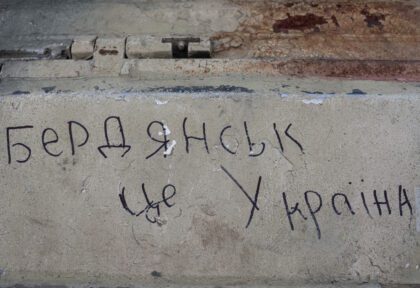 Бердянськ
це Україна